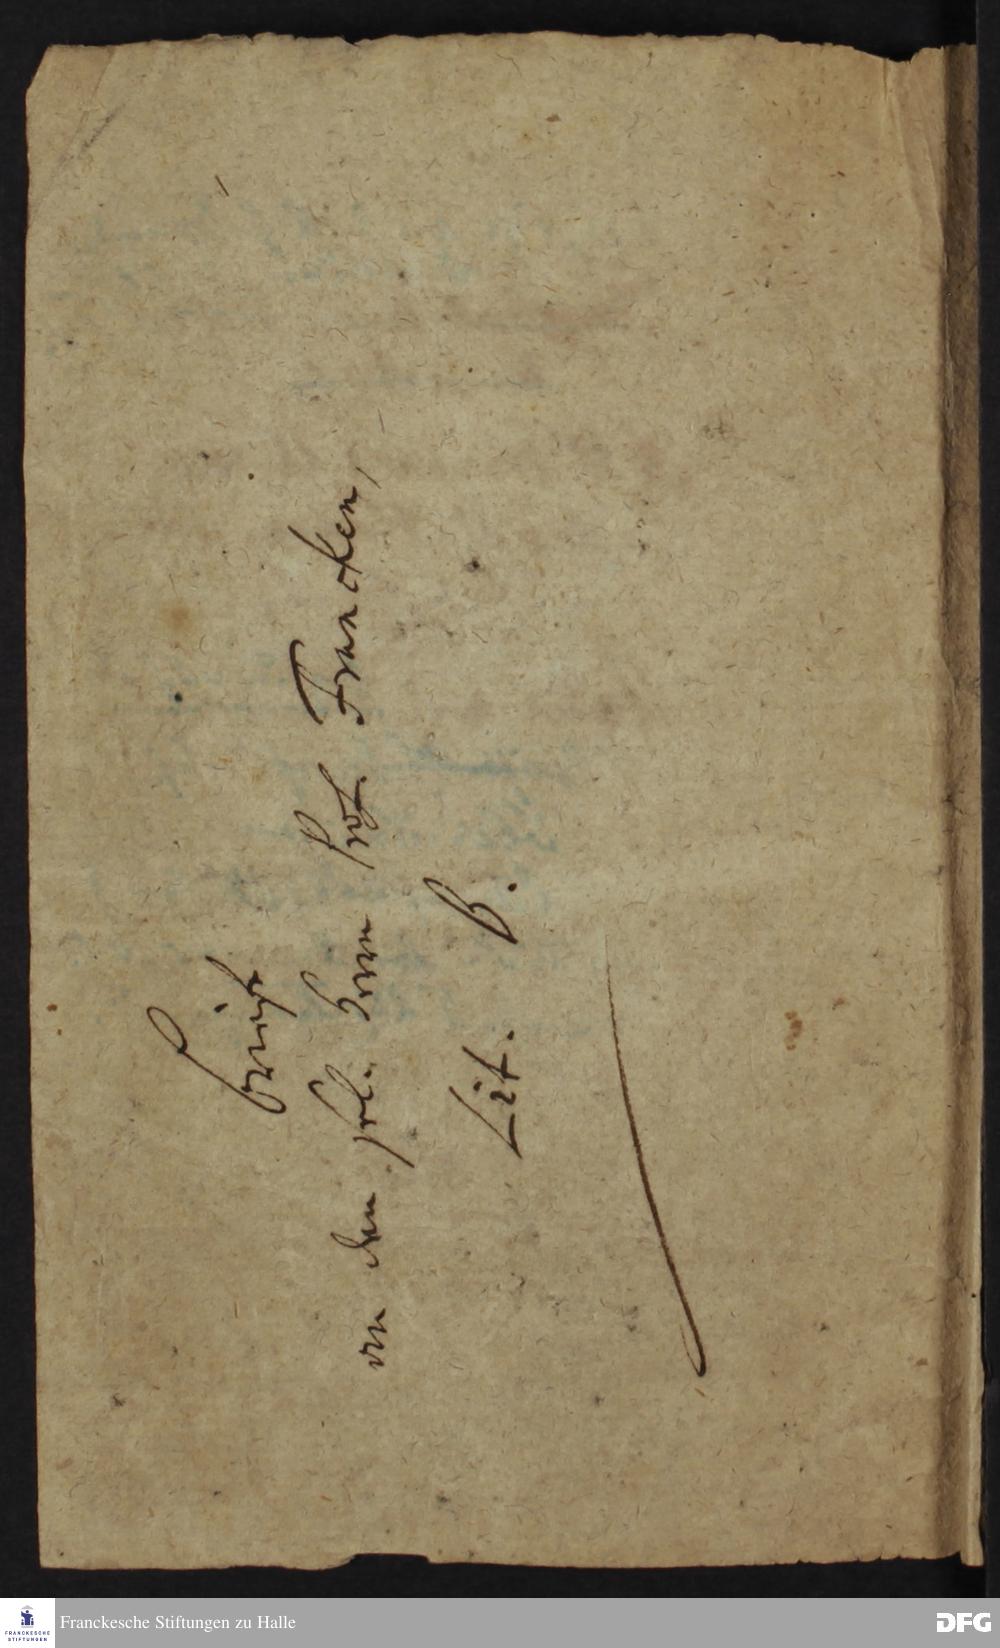 Bericht
von dem sel: Herrn Prof. Francken,
Lit. B.
FRANCKESCHE
STIFTUNGEN
Franckesche Stiftungen zu Halle
DFG